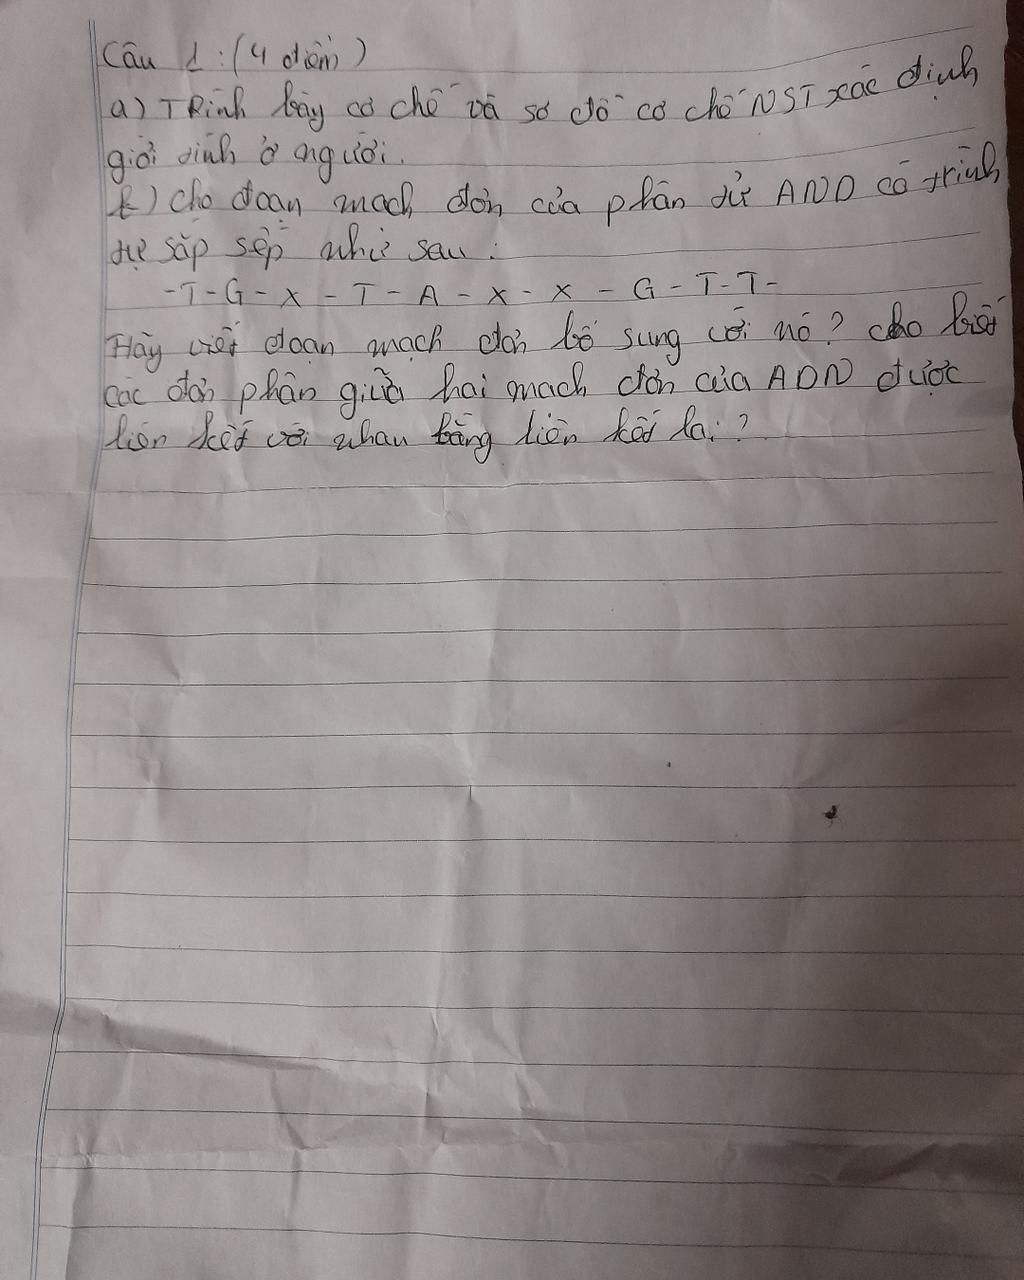 Câu 1 : (4 điểm)
a) TRình bày cơ chế và sơ đồ cơ chế NST xác định
giới tính ở người.
b) cho đoạn mạch đơn của phân tử AND có trình
tự sắp sếp như sau :
-T-G-X-T-A-X-X-G-T-T-
Hãy viết đoạn mạch đơn bổ sung với nó? cho biết
các đơn phân giữa hai mạch đơn của ADN được
liên kết với nhau bằng liên kết lại ?